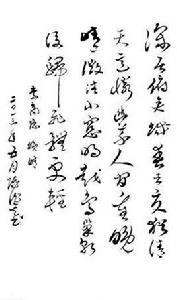 深居俯夾城春去夏猶清
天意憐幽草人間重晚
晴微注小窗明越鳥巢乾
後歸飛體更輕
李商隱 晚晴
年五月